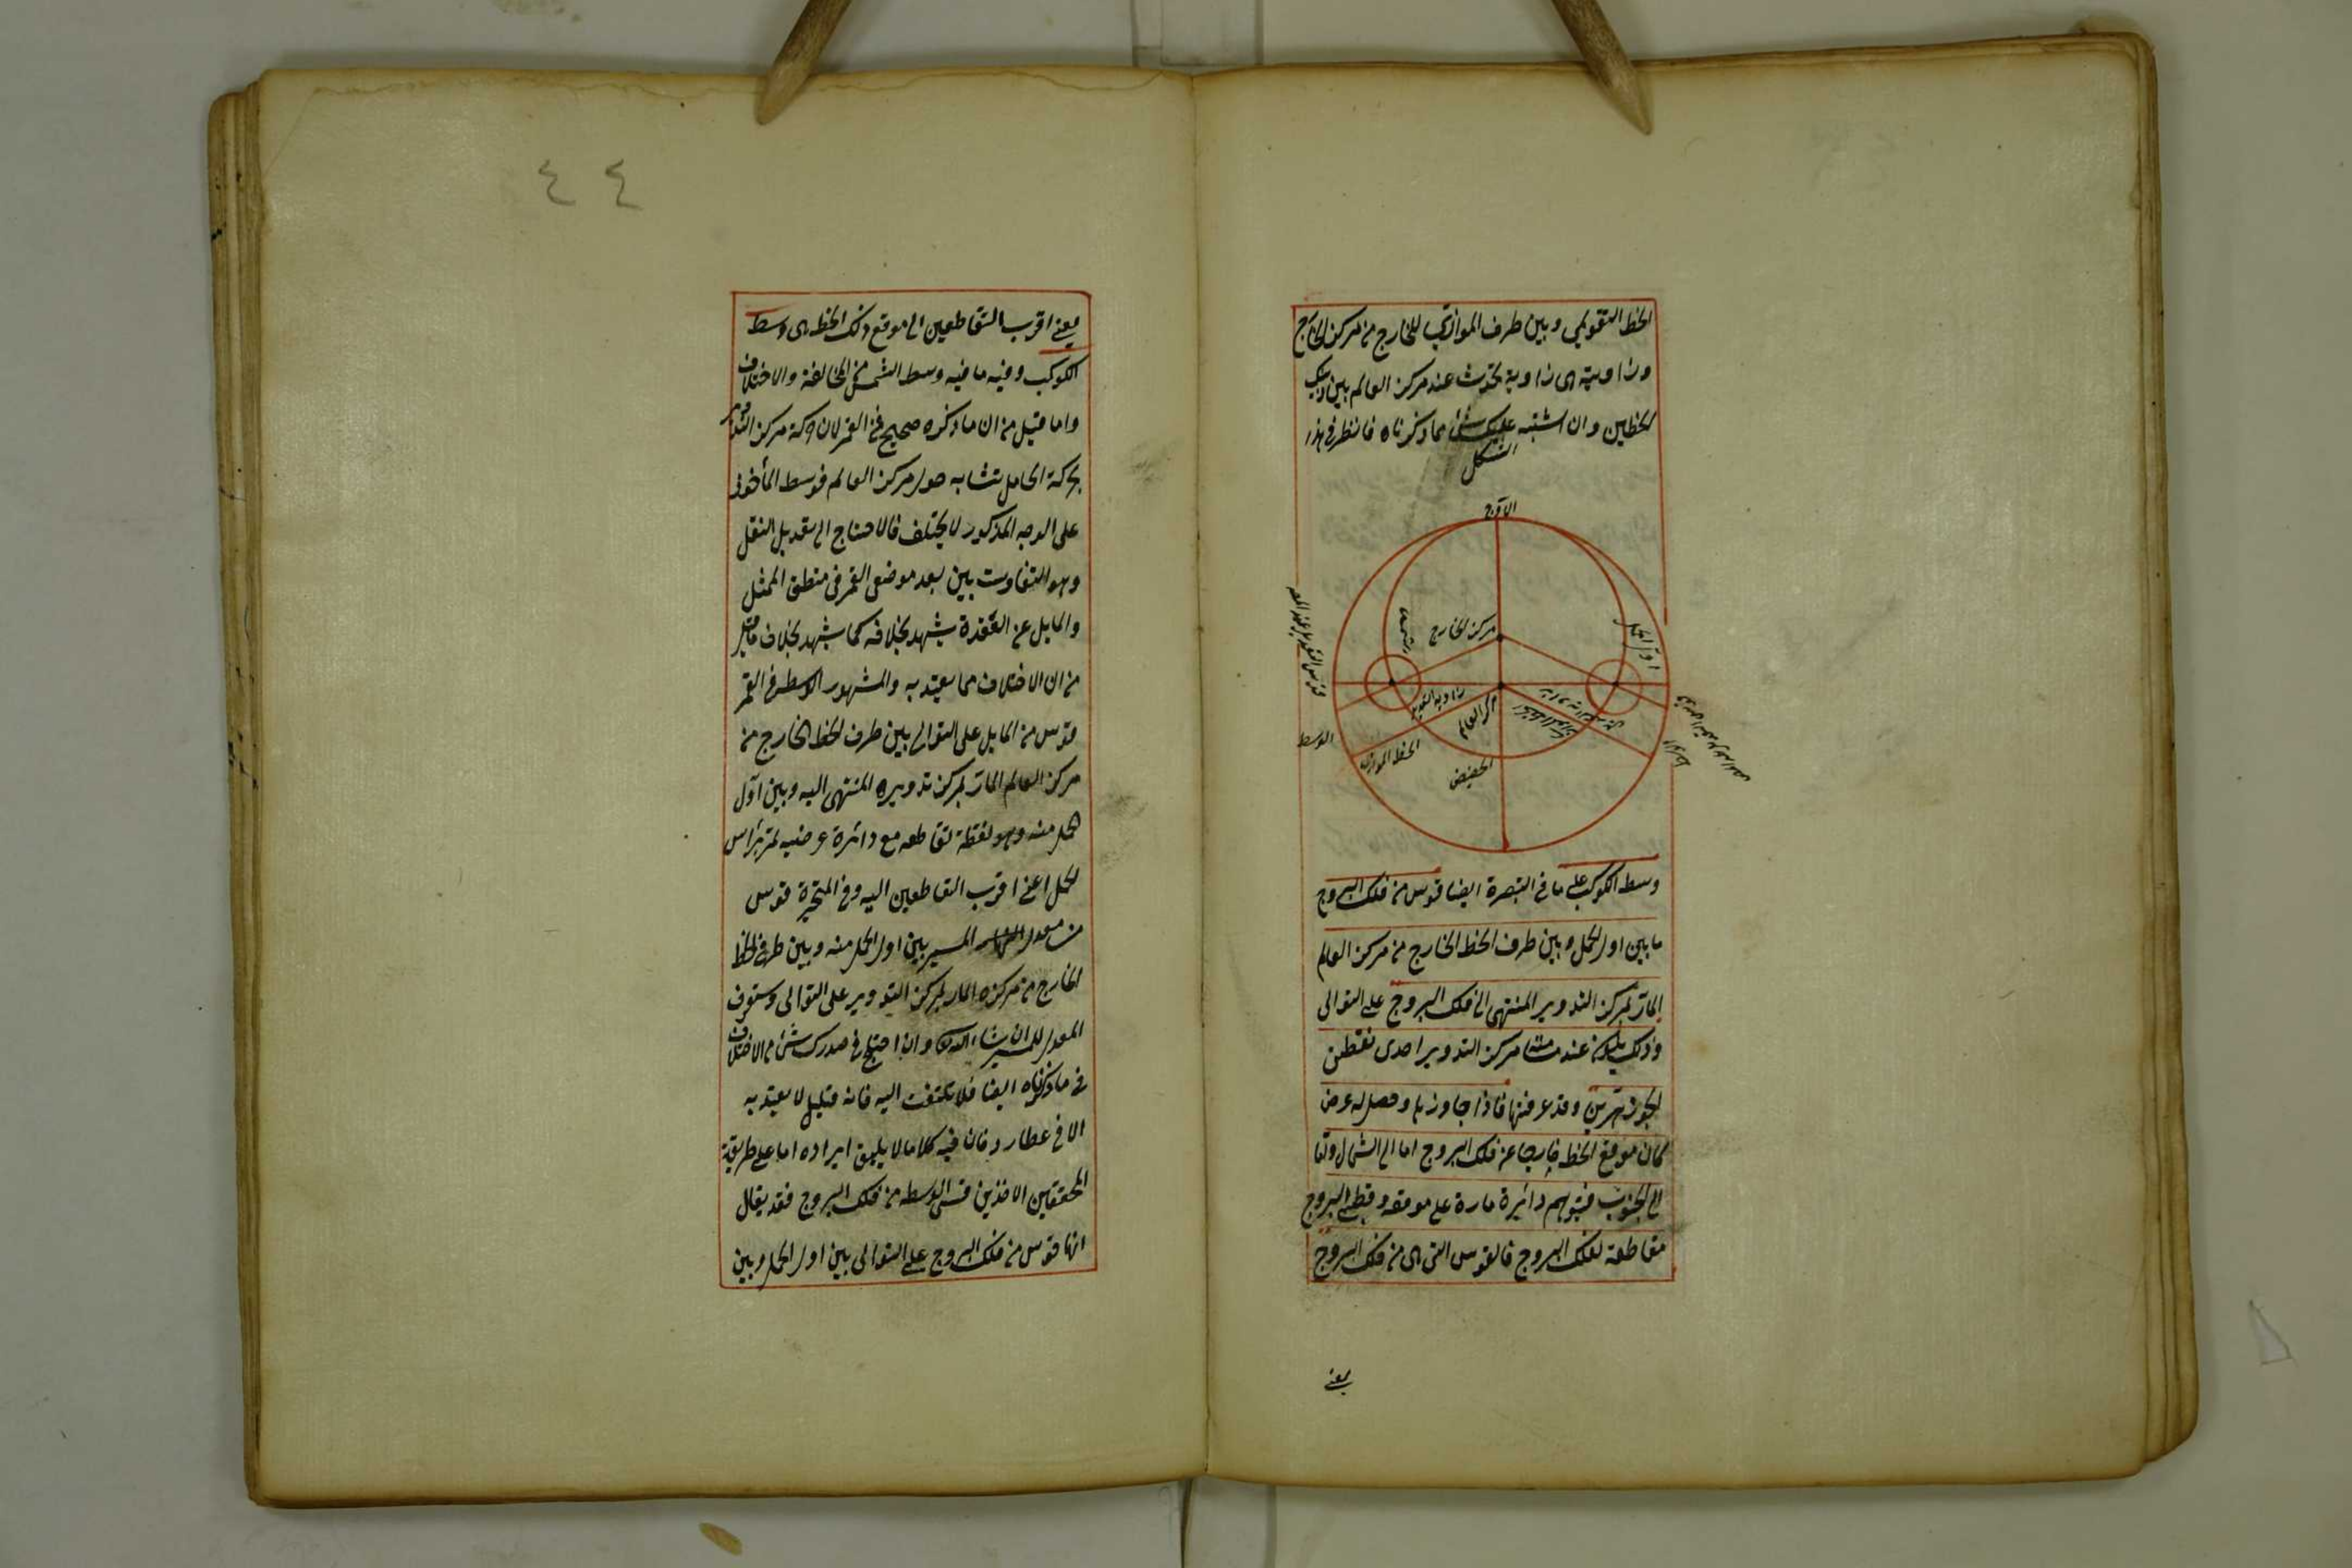 الخط التقويمي وبين طرف الموازي للخارج من مركز الخارج
وزاويته هي زاوية تحدث عند مركز العالم بين ذينك
الخطين وان اشتبه عليك شئ مما ذكرناه فانظر في هذا
الشكل
الاوج
مركز الخارج
اول الحمل
زاوية التعديل
مركز العالم
الوسط
الخط الموازي
الحضيض
وسط الكوكب على ما في التبصرة ايضا قوس من فلك البروج
ما بين اول الحمل وبين طرف الخط الخارج من مركز العالم
المار بمركز التدوير المنتهى الى فلك البروج على التوالى
وذلك يكون عند مركز التدوير احدى نقطتى
الجوزهرين وقد عرفتها فاذا جاوزها وحصل له عرض
كان موقع الخط خارجا عن فلك البروج اما الى الشمال واما
الى الجنوب فيتوهم دائرة مارة على موقعه وقطبى البروج
مقاطعة لفلك البروج فالقوس التى هى من فلك البروج
يعنى
٤٤
يعنى اقرب التقاطعين الى موقع ذلك الخط هى وسط
الكوكب وفيه ما فيه وسط الشمس من المخالفة والاختلاف
واما قيل من ان ما ذكره صحيح فى القمر لان حركة مركز التدوير
بحركة الحامل تتشابه حول مركز العالم فوسط المأخوذ
على الوجه المذكور لا يختلف فالاحتاج الى تعديل النقل
وهو التفاوت بين بعد موضعى القمر فى منطقة الممثل
والمايل عن العقدة يشهد بخلافه كما يشهد بخلاف ما قيل
من ان الاختلاف مما يعتد به والمشهور الوسط فى القمر
قوس من المايل على التوالى بين طرف الخط الخارج من
مركز العالم المار بمركز تدويره المنتهى اليه وبين اول
الحمل منه وهو نقطة تقاطعه مع دائرة عرضيه تمر برأس
الحمل اعنى اقرب التقاطعين اليه وفى المتحيرة قوس
من معدل المسير بين اول الحمل منه وبين طرف الخط
الخارج من مركزه المار بمركز التدوير على التوالى وستعرف
المعدل للمسير ان شاء الله وان احتج فى صدرك شئ من الاختلاف
فى ما ذكرناه ايضا فلا تلتفت اليه فانه قليل لا يعتد به
الا فى عطارد فان فيه كلاما لا يليق ايراده اما على طريقة
المحققين الاخذين قسى الوسط من فلك البروج فقد يقال
انها قوس من فلك البروج على التوالى بين اول الحمل وبين